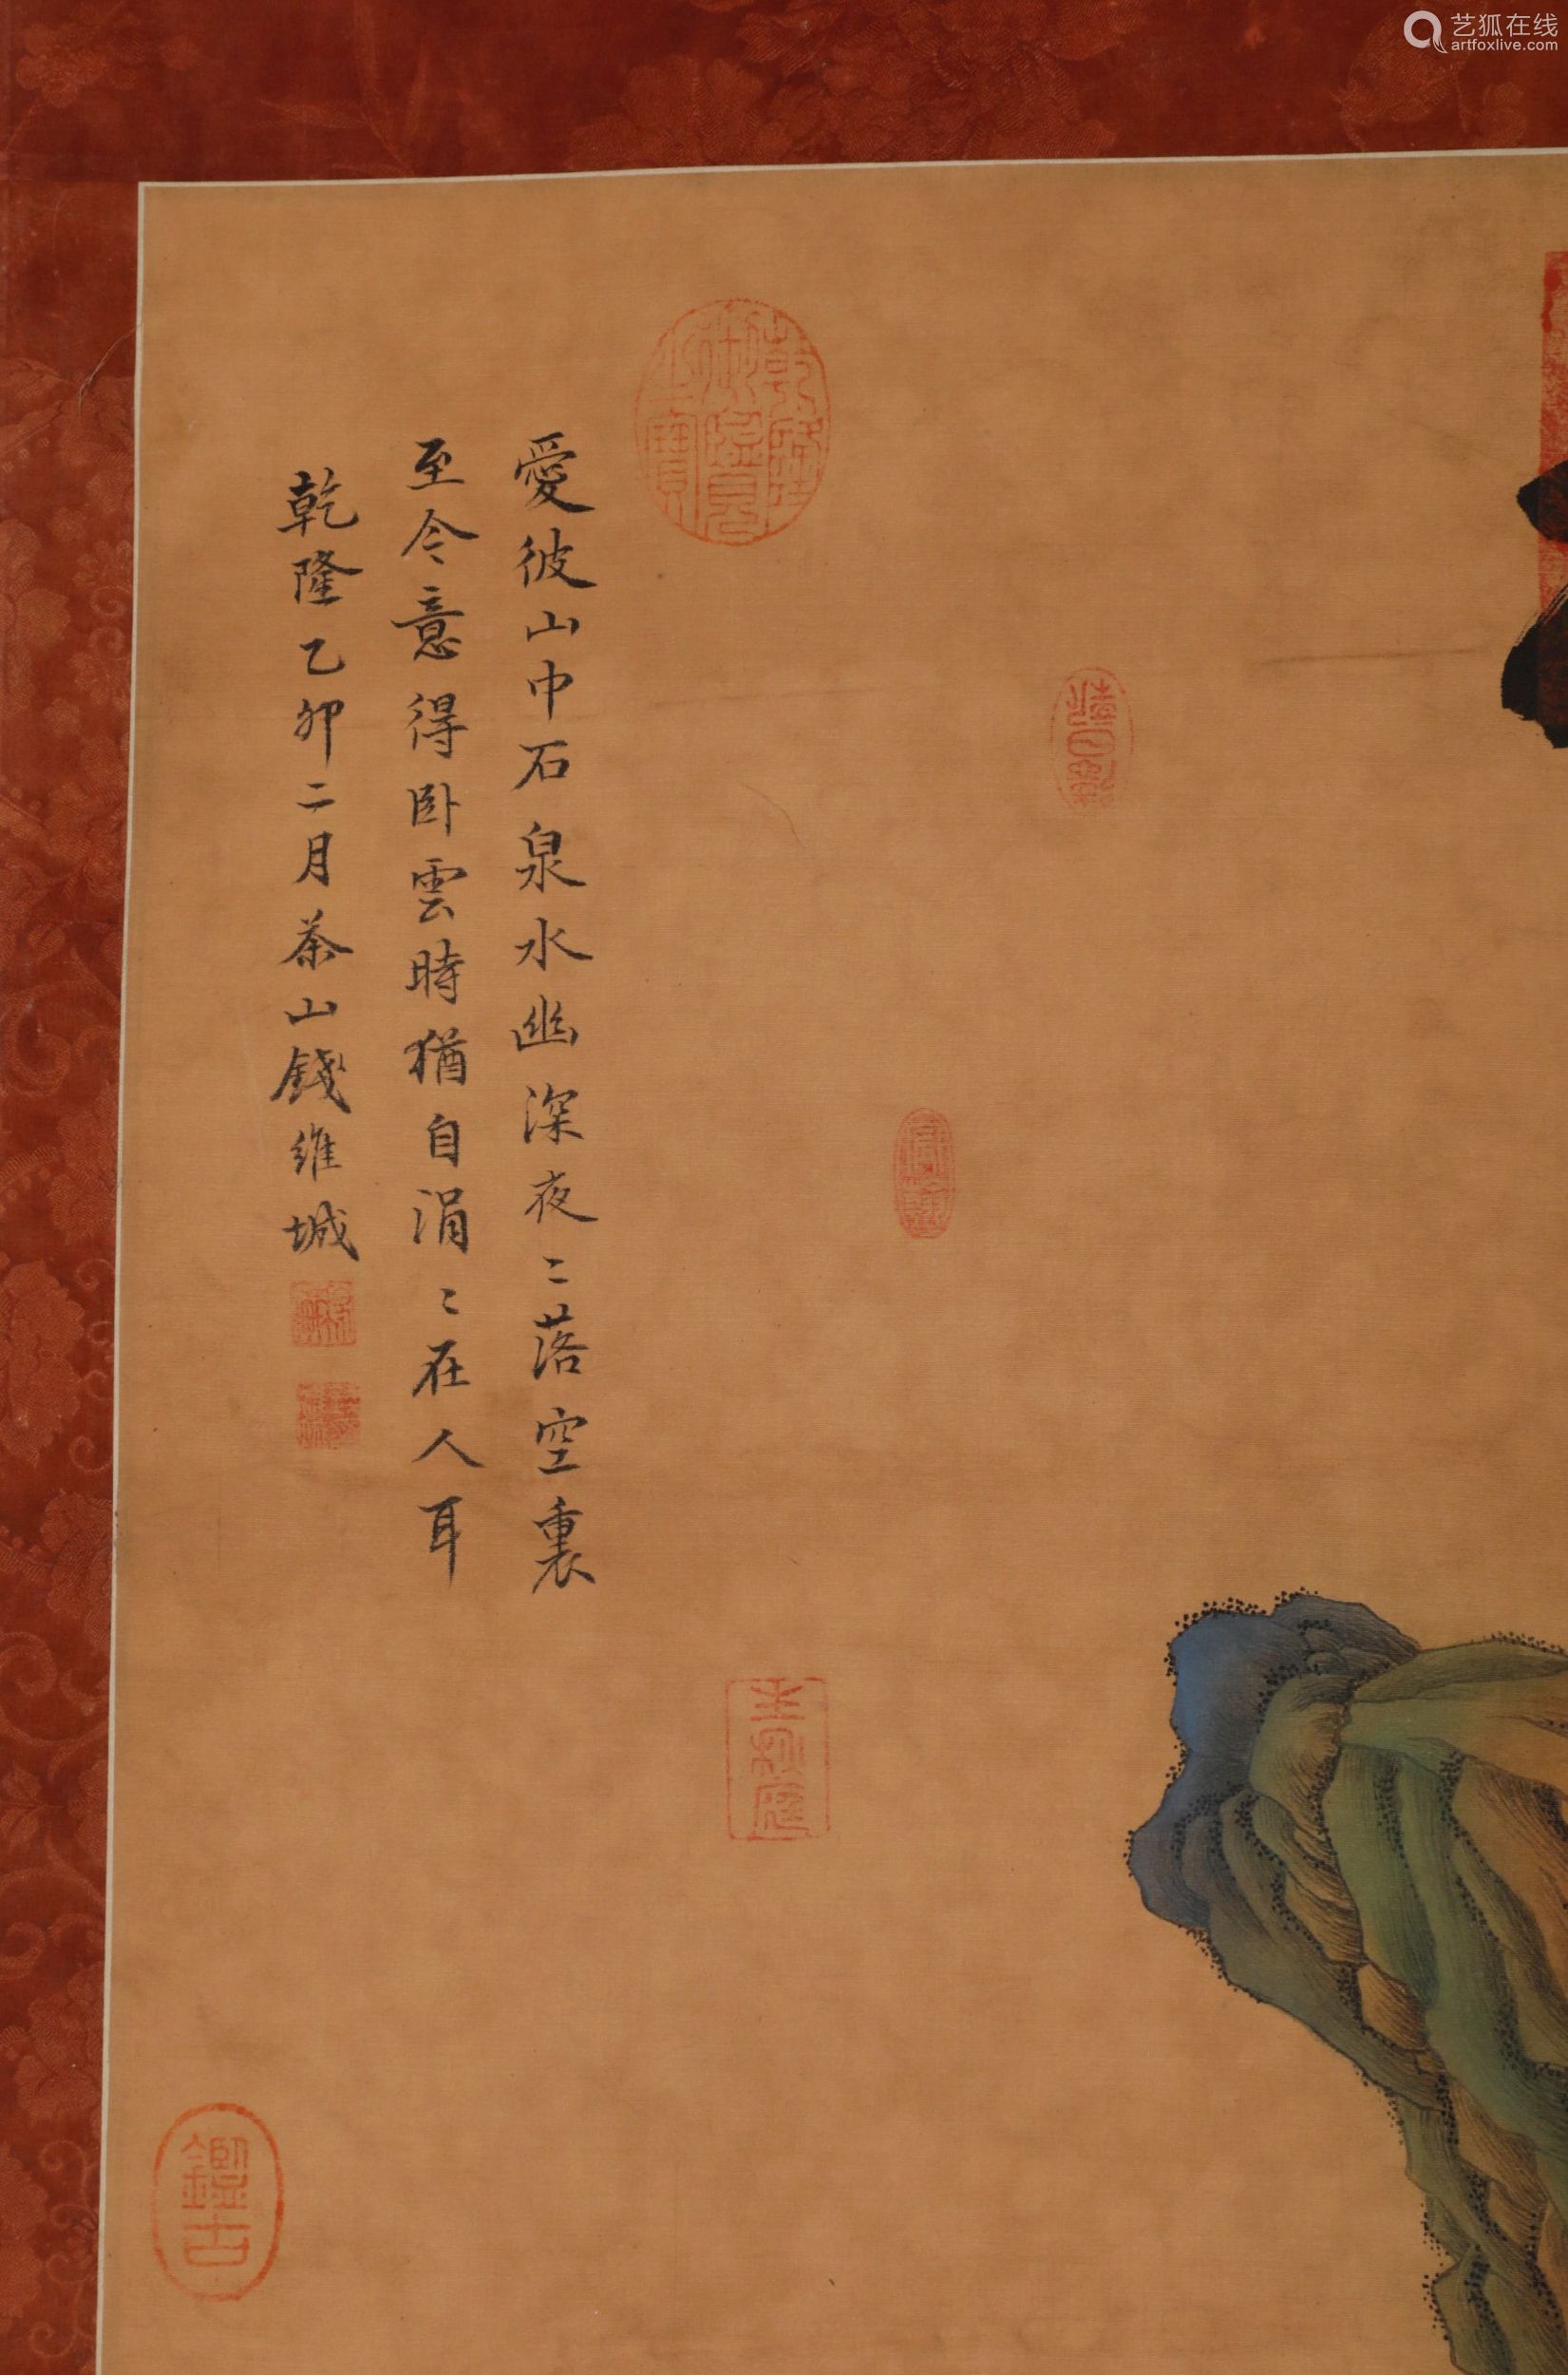 艺狐在线
artfoxlive.com
愛彼山中石泉水幽深夜〻落空裏
至今意得卧雲時猶自涓〻在人耳
乾隆乙卯二月茶山錢維城
乾隆御覽之寶
鑑古